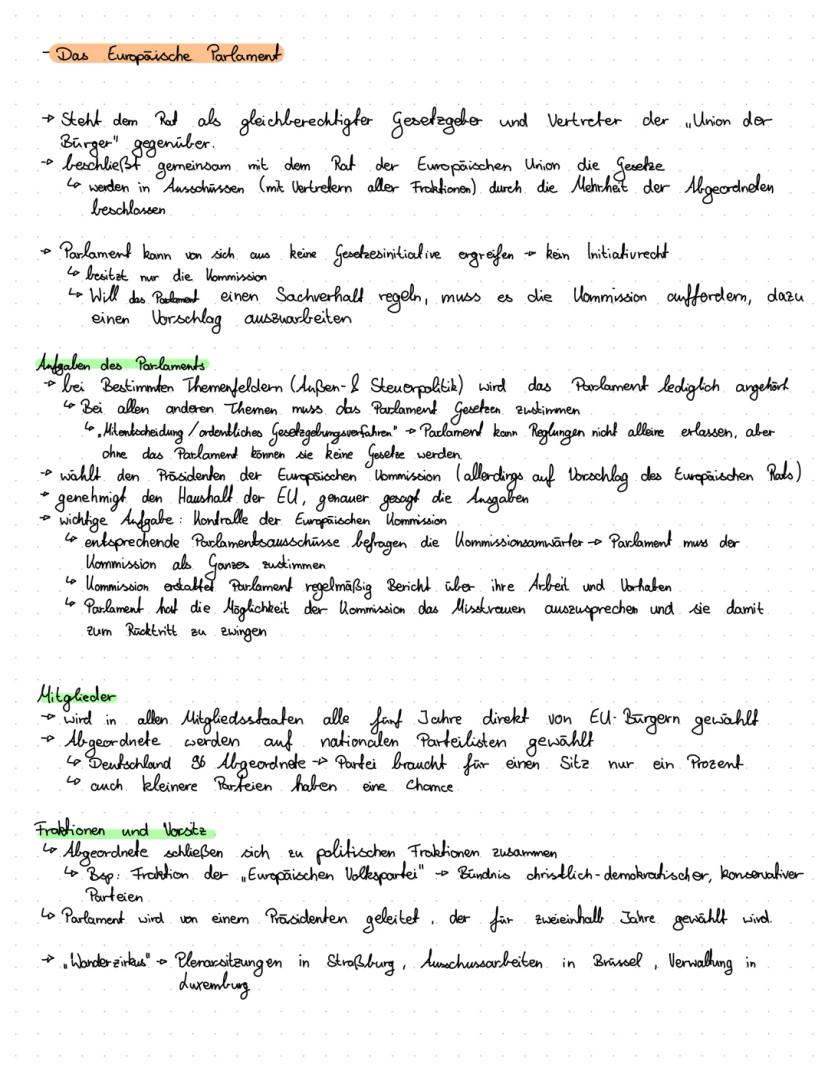 - Das Europäische Parlament
→ Steht dem Rat als gleichberechtigter Gesetzgeber und Vertreter der „Union der
Bürger" gegenüber.
→ beschließt gemeinsam mit dem Rat der Europäischen Union die Gesetze
↳ werden in Ausschüssen (mit Vertretern aller Fraktionen) durch die Mehrheit der Abgeordneten
beschlossen
→ Parlament kann von sich aus keine Gesetzesinitiative ergreifen → kein Initiativrecht
↳ besitzt nur die Kommission
↳ Will das Parlament einen Sachverhalt regeln, muss es die Kommission auffordern, dazu
einen Vorschlag auszuarbeiten
Aufgaben des Parlaments
→ bei Bestimmten Themenfeldern (Außen- & Steuerpolitik) wird das Parlament lediglich angehört
↳ Bei allen anderen Themen muss das Parlament Gesetzen zustimmen
↳ „Mitentscheidung / ordentliches Gesetzgebungsverfahren" → Parlament kann Reglungen nicht alleine erlassen, aber
ohne das Parlament können sie keine Gesetze werden
→ wählt den Präsidenten der Europäischen Kommission (allerdings auf Vorschlag des Europäischen Rats)
→ genehmigt den Haushalt der EU, genauer gesagt die Ausgaben
→ wichtige Aufgabe: Kontrolle der Europäischen Kommission
↳ entsprechende Parlamentsausschüsse befragen die Kommissionsanwärter → Parlament muss der
Kommission als Ganzes zustimmen
↳ Kommission erstattet Parlament regelmäßig Bericht über ihre Arbeit und Vorhaben
↳ Parlament hat die Möglichkeit der Kommission das Misstrauen auszusprechen und sie damit
zum Rücktritt zu zwingen
Mitglieder
→ wird in allen Mitgliedsstaaten alle fünf Jahre direkt von EU-Bürgern gewählt
→ Abgeordnete werden auf nationalen Parteilisten gewählt
↳ Deutschland 96 Abgeordnete → Partei braucht für einen Sitz nur ein Prozent
↳ auch kleinere Parteien haben eine Chance
Fraktionen und Vorsitz
↳ Abgeordnete schließen sich zu politischen Fraktionen zusammen
↳ Bsp: Fraktion der „Europäischen Volkspartei" → Bündnis christlich-demokratischer, konservativer
Parteien
↳ Parlament wird von einem Präsidenten geleitet, der für zweieinhalb Jahre gewählt wird.
→ „Wanderzirkus" → Plenarsitzungen in Straßburg, Ausschussarbeiten in Brüssel, Verwaltung in
Luxemburg